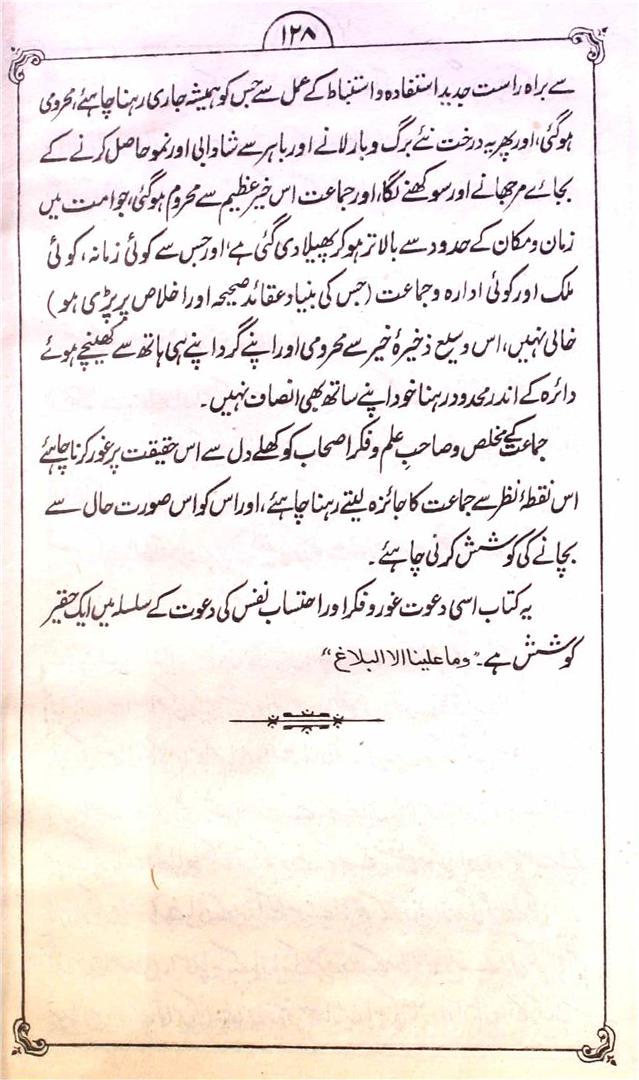 ۱۲۸
سے براہ راست جدید استفادہ و استنباط کے عمل سے جس کو ہمیشہ جاری رہنا چاہئے، محرومی
ہوگئی، اور پھر یہ درخت نئے برگ و بار لانے اور باہر سے شادابی اور نمو حاصل کرنے کے
بجائے مرجھانے اور سوکھنے لگا، اور جماعت اس خیر عظیم سے محروم ہوگئی، جو امت میں
زمان و مکان کے حدود سے بالاتر ہوکر پھیلا دی گئی ہے، اور جس سے کوئی زمانہ، کوئی
ملک اور کوئی ادارہ و جماعت (جس کی بنیاد عقائد صحیحہ اور اخلاص پر پڑی ہو)
خالی نہیں، اس وسیع ذخیرۂ خیر سے محرومی اور اپنے گرد اپنے ہی ہاتھ سے کھینچے ہوئے
دائرہ کے اندر محدود رہنا خود اپنے ساتھ بھی انصاف نہیں۔
جماعت کے مخلص و صاحبِ علم و فکر اصحاب کو کھلے دل سے اس حقیقت پر غور کرنا چاہئے
اس نقطۂ نظر سے جماعت کا جائزہ لیتے رہنا چاہئے، اور اس کو اس صورت حال سے
بچانے کی کوشش کرنی چاہئے۔
یہ کتاب اسی دعوت غور و فکر اور احتساب نفس کی دعوت کے سلسلہ میں ایک حقیر
کوشش ہے۔ "وما علینا الا البلاغ"